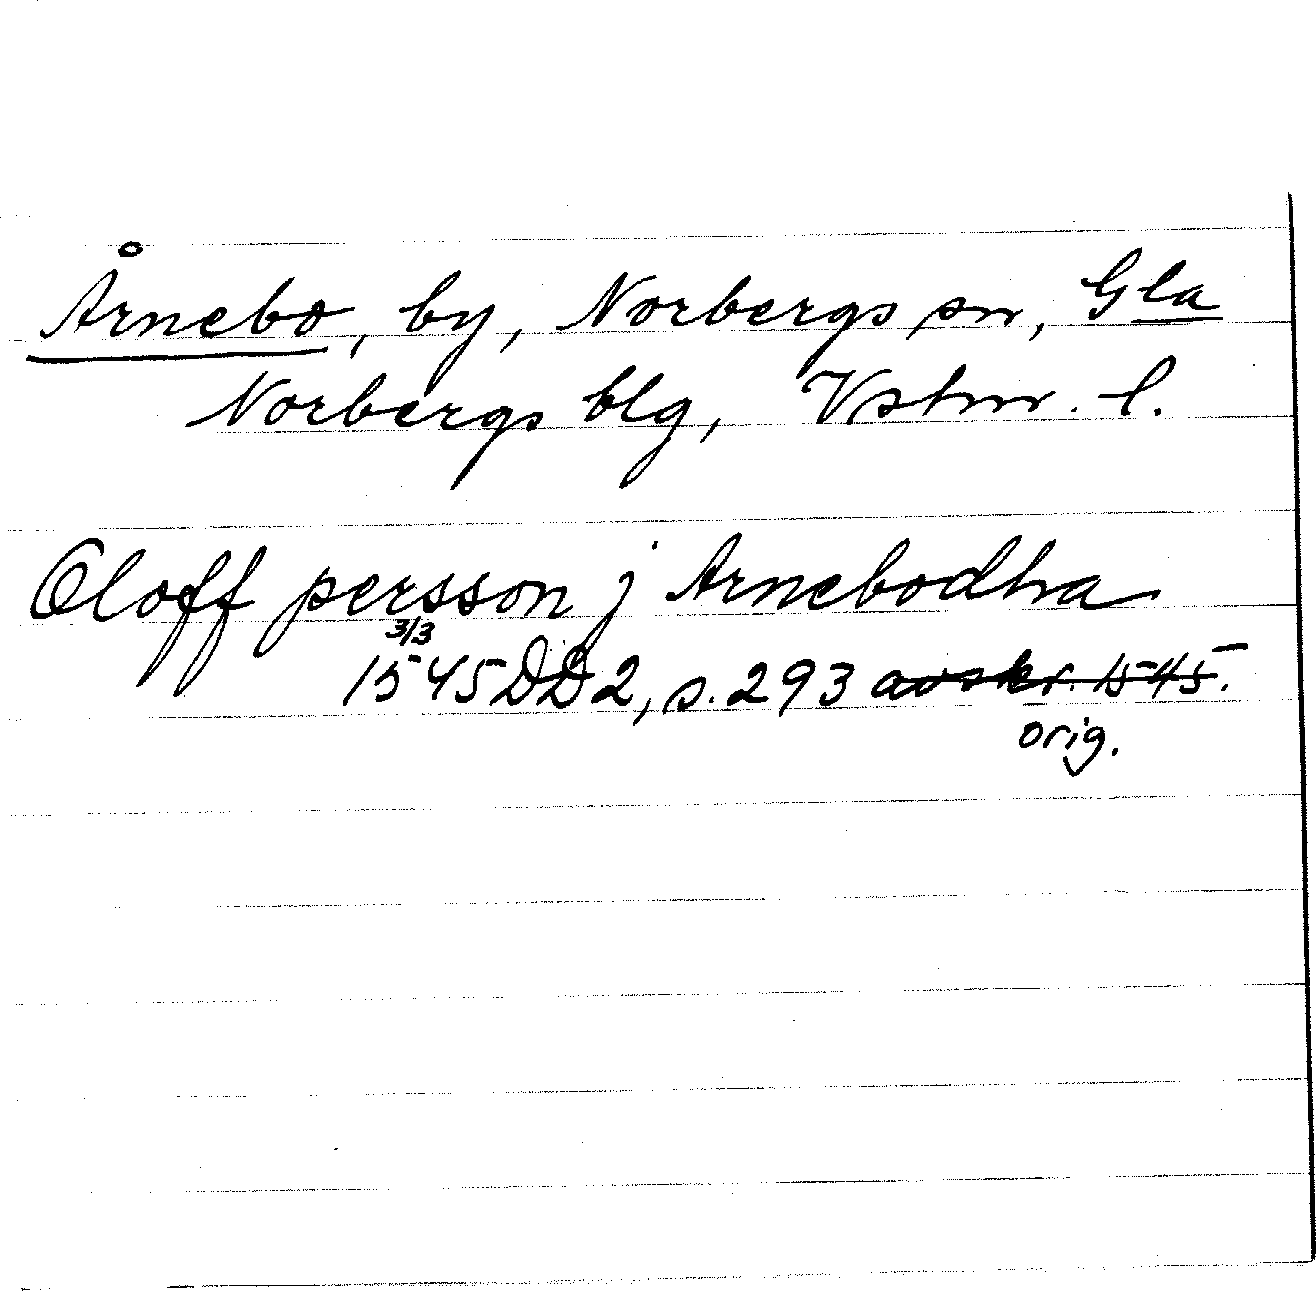 Årnebo, by, Norbergs sn, Gla
Norbergs blg, Vstm. l.
Oloff persson j Arnebodha
3/3
1545 DD2, s. 293 avskr. 1545.
orig.